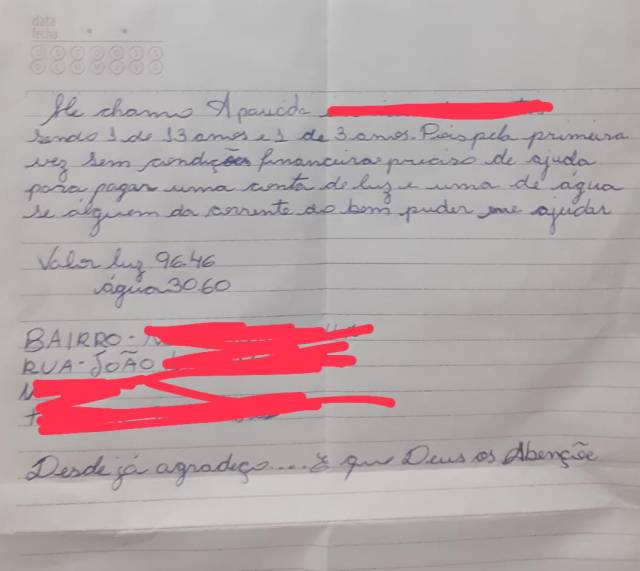 data
fecha
D S T Q Q S S
D L M M J V S
Me chamo Aparecida
sendo 1 de 13 anos e 1 de 3 anos. Pois pela primeira
vez sem condições financeira preciso de ajuda
para pagar uma conta de luz e uma de água
se alguem da corrente do bem puder me ajudar
Valor luz 96.46
água 30.60
BAIRRO -
RUA - JOÃO
Desde já agradeço.... E que Deus os Abençõe